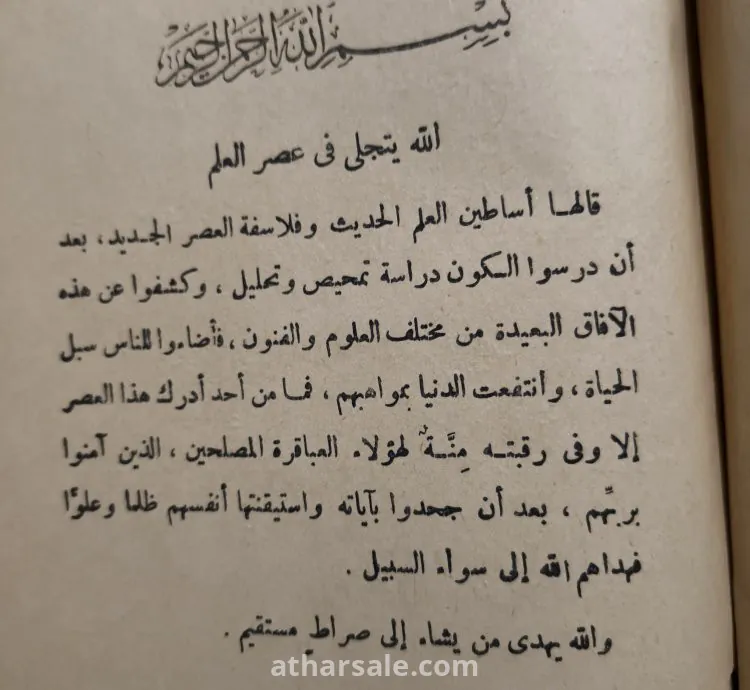 بسم الله الرحمن الرحيم
الله يتجلى فى عصر العلم
قالهـا أساطين العلم الحديث وفلاسفة العصر الجـديد ، بعد
أن درسوا الـكون دراسة تمحيص وتحليل ، وكشفوا عن هذه
الآفاق البعيدة من مختلف العلوم والفنون ، فأضاءوا للناس سبل
الحياة ، وأنتفعت الدنيا بمواهبهم ، فمـا من أحد أدرك هذا العصر
إلا وفى رقبتـه مِنَّـةٌ لهؤلاء العباقرة المصلحين ، الذين آمنوا
بربِّهم ، بعد أن جحدوا بآياته واستيقنتها أنفسهم ظلما وعلوًّا
فهداهم الله إلى سواء السبيل .
والله يهدى من يشاء إلى صراطٍ مستقيم .
atharsale.com